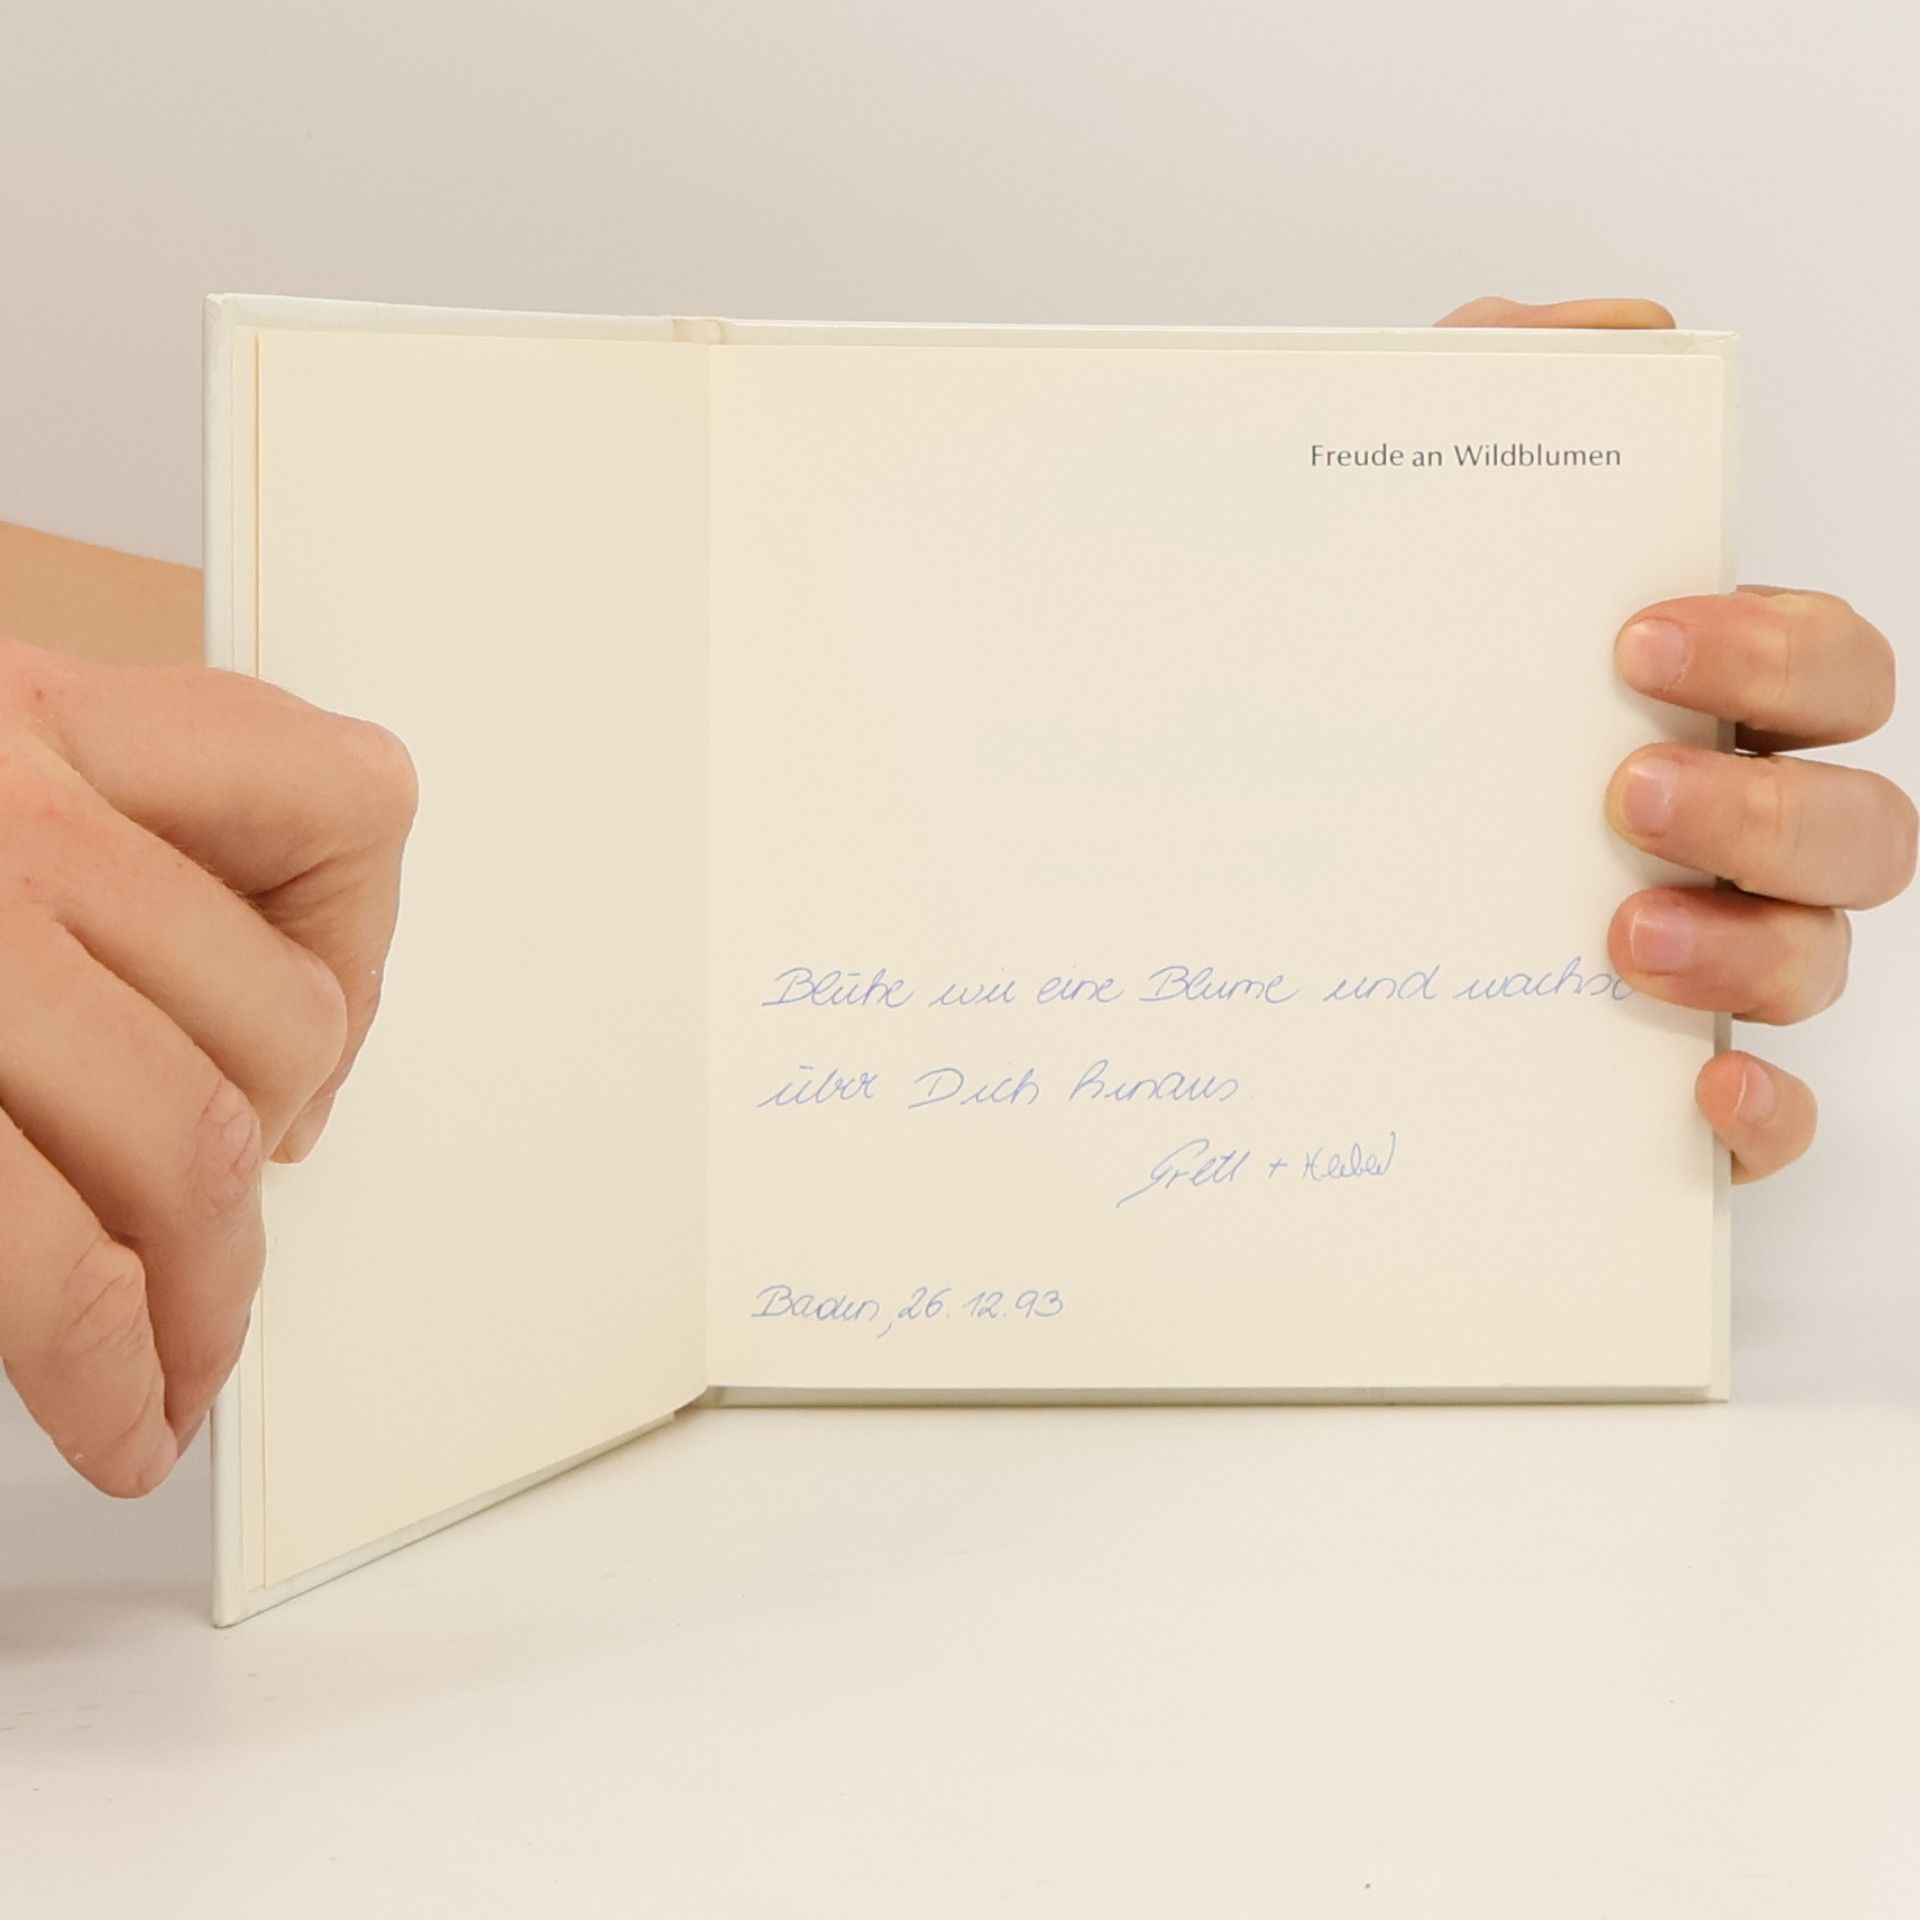 Freude an Wildblumen
Blühe wie eine Blume und wachse
über Dich hinaus
Gretl +
Baden, 26.12.93